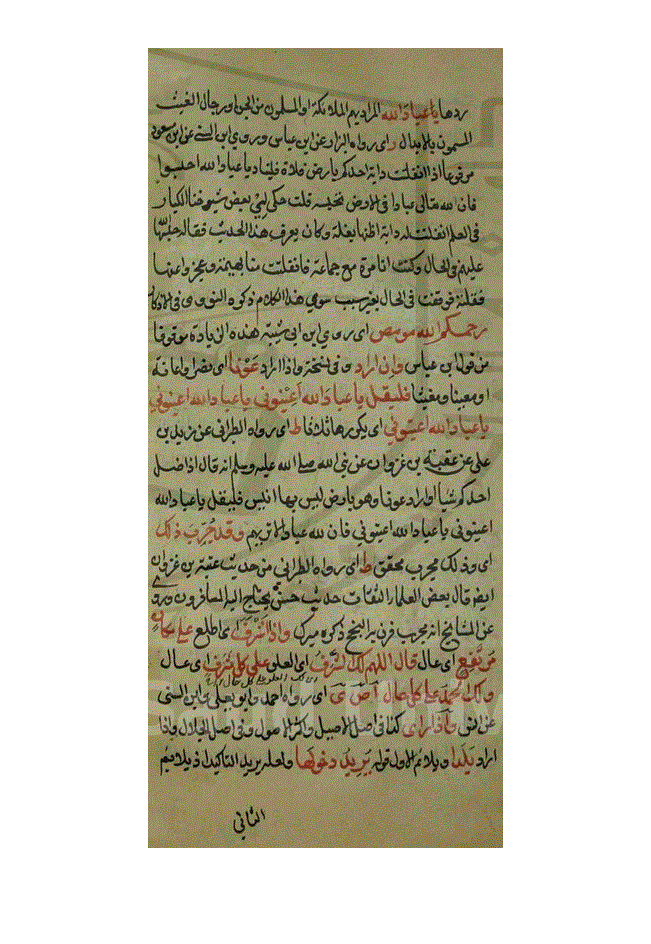 ردها يا عباد الله المراد بهم الملائكة او المسلمون من الجن او رجال الغيب
المسمون بالابدال ر اي رواه البزار عن ابن عباس وروي ابن السني عن ابن مسعود
مرفوعا اذا انفلتت دابة احدكم بارض فلاة فليناد يا عباد الله احبسوا
فان لله تعالي عبادا في الارض تحبسه قلت حكي لي بعض شيوخنا الكبار
في العلم انفلتت له دابة اظنها بغلة وكان يعرف هذا الحديث فقاله فحبسها
عليهم في الحال وكنت انا مرة مع جماعة فانفلتت منا بهيمة وعجزوا عنها
فقلته فوقفت في الحال بغير سبب سوي هذا الكلام ذكره النووي في الاذكار
رحمكم الله مو مص اي روي ابن ابي شيبة هذه الزيادة موقوفا
من قول ابن عباس وان اراد وفي نسخة واذا اراد عونا اي نصرا واعانة
او معينا ومغيثا فليقل يا عباد الله اعينوني يا عباد الله اعينوني
يا عباد الله اعينوني اي يكررها ثلاثا ط اي رواه الطبراني عن زيد بن
علي عن عتبة بن غزوان عن نبي الله صلى الله عليه وسلم انه قال اذا ضل
احدكم شيأ او اراد عونا وهو بارض ليس بها انيس فليقل يا عباد الله
اعينوني يا عباد الله اعينوني فان لله عبادا لا نريهم وقد جرب ذلك
اي وذلك مجرب محقق ط اي رواه الطبراني من حديث عتبة بن غزوان
ايضا قال بعض العلماء الثقات حديث حسن يحتاج اليه المسافرون وروي
عن المشايخ انه مجرب قرن به النجح ذكره ميرك واذا اشرف اي اطلع علي مكان
مرتفع اي عال قال اللهم لك الشرف اي العلو علي كل شرف اي عال
ولك الحمد علي كل حال ا ص ي اي رواه احمد وابو يعلي وابن السني
عن انس واذا راي كذا في اصل الاصيل واكثر الاصول وفي اصل الجلال واذا
اراد بلدا ويلائم الاول قوله يريد دخولها ولعله يريد التاكيد اذ يلائم
الثاني